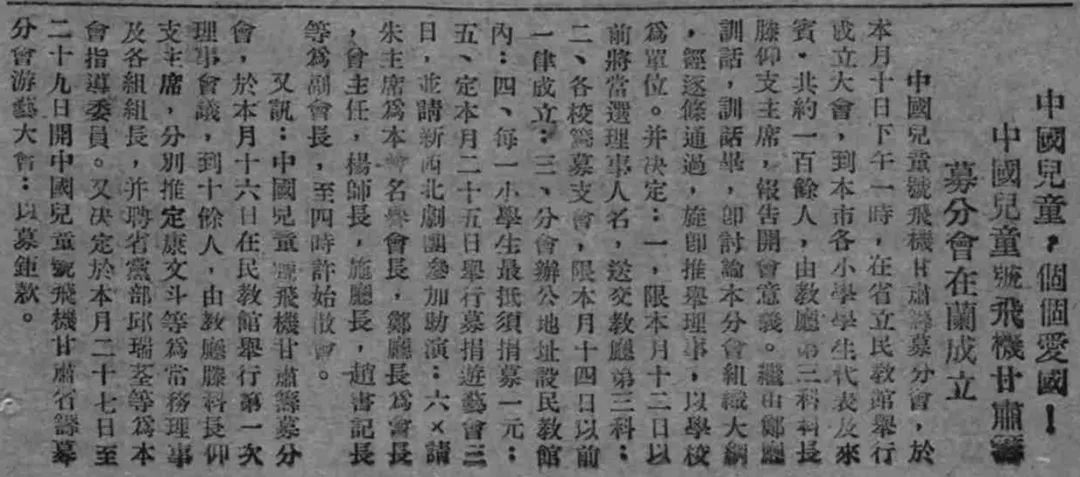 中國兒童，個個愛國！
中國兒童號飛機甘肅籌
募分會在蘭成立
中國兒童號飛機甘肅籌募分會，於
本月十日下午一時，在省立民教館舉行
成立大會，到本市各小學學生代表及來
賓・共約一百餘人，由教廳第三科科長
滕仰支主席，報告開會意義。繼由鄭廳
訓話，訓話畢，卽討論本分會組織大綱
，經逐條通過，旋卽推舉理事，以學校
爲單位。并决定：一，限本月十二日以
前將當選理事人名，送交教廳第三科：
二、各校籌募支會，限本月十四日以前
一律成立：三、分會辦公地址設民教館
內：四、每一小學生最抵須捐募一元：
五、定本月二十五日舉行募捐遊藝會三
日，並請新西北劇團參加助演：六×請
朱主席爲本會名譽會長，鄭廳長爲會長
，曾主任，楊師長，施廳長，趙書記長
等爲副會長，至四時許始散會。
又訊：中國兒童號飛機甘肅籌募分
會，於本月十六日在民教館舉行第一次
理事會議，到十餘人，由教廳滕科長仰
支主席，分別推定康文斗等爲常務理事
及各組組長，并聘省黨部邱瑞荃等爲本
會指導委員。又决定於本月二十七日至
二十九日開中國兒童號飛機甘肅省籌募
分會游藝大會：以募鉅款。